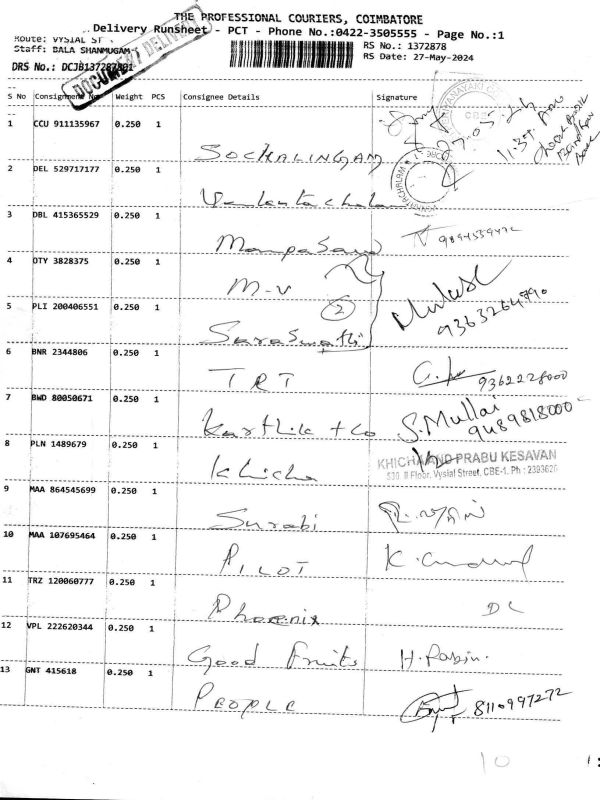 THE PROFESSIONAL COURIERS, COIMBATORE
Delivery Runsheet - PCT - Phone No.:0422-3505555 - Page No.:1
Route: VYSIAL ST
RS No.: 1372878
Staff: BALA SHANMUGAM
RS Date: 27-May-2024
DRS No.:
DOCUMENT DELIVERY
S No Consignment No Weight PCS Consignee Details Signature
1 CCU 911135967 0.250 1 SOCKALINGAM
2 DEL 529717177 0.250 1 Venkatachalam
3 DBL 415365529 0.250 1
4 OTY 3828375 0.250 1 M-V
5 PLI 200406551 0.250 1 Saraswathi
2
9363264790
6 BNR 2344806 0.250 1 TRT 9362228000
7 BWD 80050671 0.250 1 Karthik + Co S. Mullai
9489818000
8 PLN 1489679 0.250 1 Khicha KHICHA AND PRABU KESAVAN
530, II Floor, Vysial Street, CBE-1. Ph : 2393626
9 MAA 864545699 0.250 1 Surabi
10 MAA 107695464 0.250 1 PILOT
11 TRZ 120060777 0.250 1 Phoenix DL
12 VPL 222620344 0.250 1 Good Fruits
13 GNT 415618 0.250 1 PEOPLE 8110997272
10